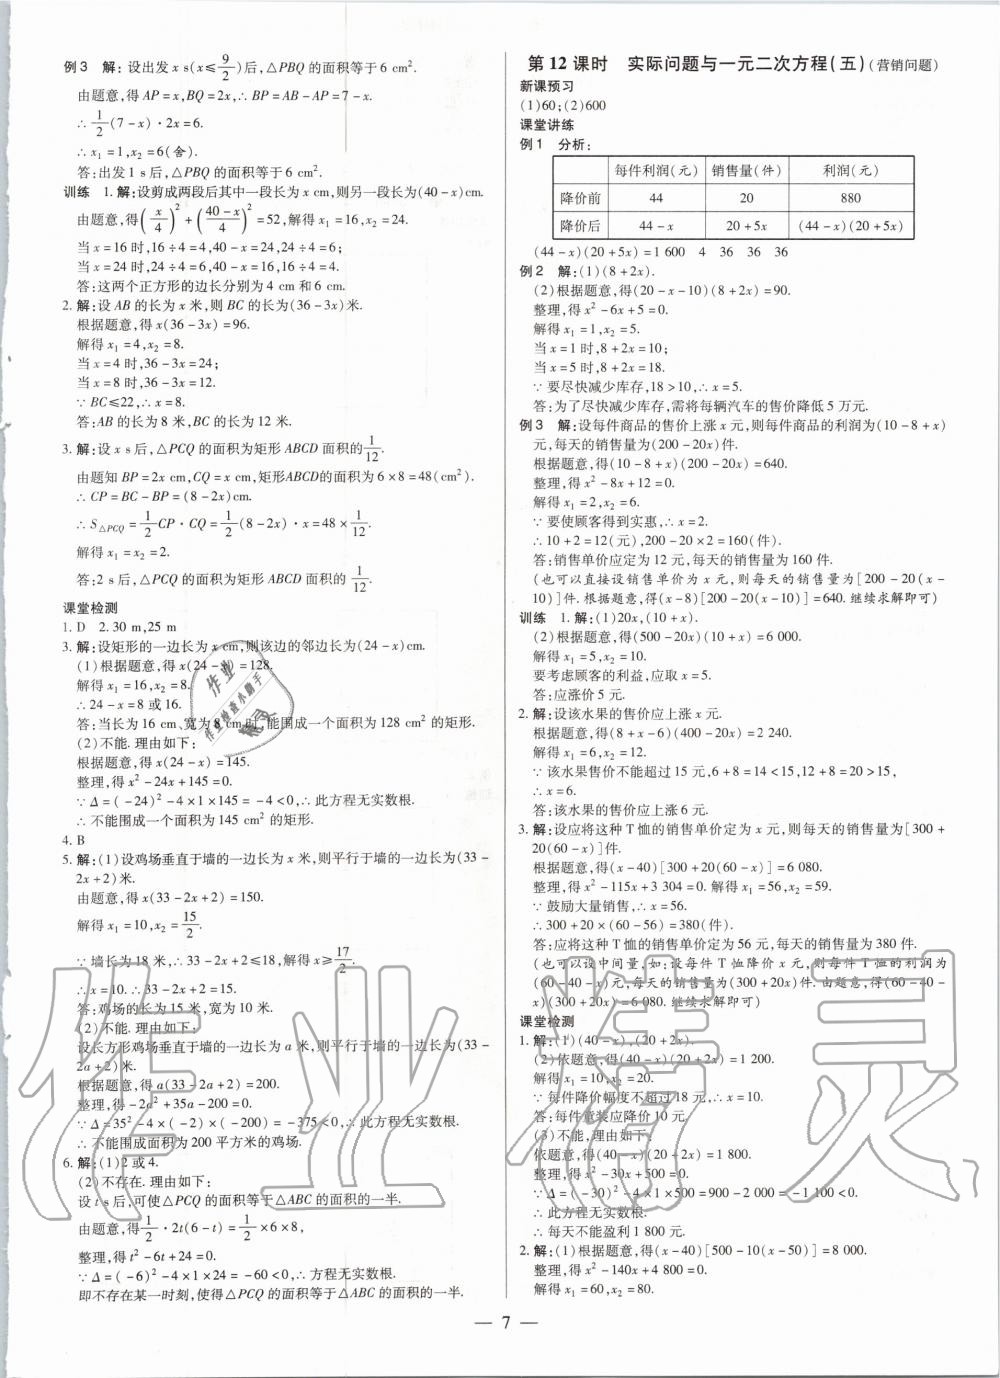 例3 解:设出发 x s(x≤9/2)后,△PBQ 的面积等于 6 cm².
由题意,得 AP=x,BQ=2x,∴BP=AB-AP=7-x.
∴1/2(7-x)·2x=6.
∴x₁=1,x₂=6(舍).
答:出发 1 s 后,△PBQ 的面积等于 6 cm².
训练 1.解:设剪成两段后其中一段长为 x cm,则另一段长为(40-x)cm.
由题意,得(x/4)²+((40-x)/4)²=52,解得 x₁=16,x₂=24.
当 x=16 时,16÷4=4,40-x=24,24÷4=6;
当 x=24 时,24÷4=6,40-x=16,16÷4=4.
答:这两个正方形的边长分别为 4 cm 和 6 cm.
2.解:设 AB 的长为 x 米,则 BC 的长为(36-3x)米.
根据题意,得 x(36-3x)=96.
解得 x₁=4,x₂=8.
当 x=4 时,36-3x=24;
当 x=8 时,36-3x=12.
∵BC≤22,∴x=8.
答:AB 的长为 8 米,BC 的长为 12 米.
3.解:设 x s 后,△PCQ 的面积为矩形 ABCD 面积的1/12.
由题知 BP=2x cm,CQ=x cm,矩形ABCD的面积为 6×8=48(cm²).
∴CP=BC-BP=(8-2x)cm.
∴S△PCQ=1/2CP·CQ=1/2(8-2x)·x=48×1/12.
解得 x₁=x₂=2.
答:2 s 后,△PCQ 的面积为矩形 ABCD 面积的 1/12.
课堂检测
1.D 2.30 m,25 m
3.解:设矩形的一边长为 x cm,则该边的邻边长为(24-x)cm.
(1)根据题意,得 x(24-x)=128.
解得 x₁=16,x₂=8.
∴24-x=8 或 16.
答:当长为 16 cm、宽为 8 cm 时,能围成一个面积为 128 cm² 的矩形.
(2)不能.理由如下:
根据题意,得 x(24-x)=145.
整理,得 x²-24x+145=0.
∵Δ=(-24)²-4×1×145=-4<0,∴此方程无实数根.
∴不能围成一个面积为 145 cm² 的矩形.
4.B
5.解:(1)设鸡场垂直于墙的一边长为 x 米,则平行于墙的一边长为(33-
2x+2)米.
由题意,得 x(33-2x+2)=150.
解得 x₁=10,x₂=15/2.
∵墙长为 18 米,∴33-2x+2≤18,解得 x≥17/2.
∴x=10.∴33-2x+2=15.
答:鸡场的长为 15 米,宽为 10 米.
(2)不能.理由如下:
设长方形鸡场垂直于墙的一边长为 a 米,则平行于墙的一边长为(33-
2a+2)米.
根据题意,得 a(33-2a+2)=200.
整理,得-2a²+35a-200=0.
∵Δ=35²-4×(-2)×(-200)=-375<0,∴此方程无实数根.
∴不能围成面积为 200 平方米的鸡场.
6.解:(1)2 或 4.
(2)不存在.理由如下:
设 t s 后,可使△PCQ 的面积等于△ABC 的面积的一半.
由题意,得1/2·2t(6-t)=1/2×6×8,
整理,得 t²-6t+24=0.
∵Δ=(-6)²-4×1×24=-60<0,∴方程无实数根.
即不存在某一时刻,使得△PCQ 的面积等于△ABC 的面积的一半.
第12课时 实际问题与一元二次方程(五)(营销问题)
新课预习
(1)60;(2)600
课堂讲练
例1 分析:
每件利润(元) 销售量(件) 利润(元)
降价前 44 20 880
降价后 44-x 20+5x (44-x)(20+5x)
(44-x)(20+5x)=1 600 4 36 36 36
例2 解:(1)(8+2x).
(2)根据题意,得(20-x-10)(8+2x)=90.
整理,得 x²-6x+5=0.
解得 x₁=1,x₂=5.
当 x=1 时,8+2x=10;
当 x=5 时,8+2x=18.
∵要尽快减少库存,18>10,∴x=5.
答:为了尽快减少库存,需将每辆汽车的售价降低 5 万元.
例3 解:设每件商品的售价上涨 x 元,则每件商品的利润为(10-8+x)
元,每天的销售量为(200-20x)件.
根据题意,得(10-8+x)(200-20x)=640.
整理,得 x²-8x+12=0.
解得 x₁=2,x₂=6.
∵要使顾客得到实惠,∴x=2.
∴10+2=12(元),200-20×2=160(件).
答:销售单价应定为 12 元,每天的销售量为 160 件.
(也可以直接设销售单价为 x 元,则每天的销售量为[200-20(x-
10)]件.根据题意,得(x-8)[200-20(x-10)]=640.继续求解即可)
训练 1.解:(1)20x,(10+x).
(2)根据题意,得(500-20x)(10+x)=6 000.
解得 x₁=5,x₂=10.
要考虑顾客的利益,应取 x=5.
答:应涨价 5 元.
2.解:设该水果的售价应上涨 x 元.
根据题意,得(8+x-6)(400-40x)=2 240.
解得 x₁=6,x₂=12.
∵该水果售价不能超过 15 元,6+8=14<15,12+8=20>15,
∴x=6.
答:该水果的售价应上涨 6 元.
3.解:设应将这种 T 恤的销售单价定为 x 元,则每天的销售量为[300+
20(60-x)]件.
根据题意,得(x-40)[300+20(60-x)]=6 080.
整理,得 x²-115x+3 304=0.解得 x₁=56,x₂=59.
∵鼓励大量销售,∴x=56.
∴300+20×(60-56)=380(件).
答:应将这种 T 恤的销售单价定为 56 元,每天的销售量为 380 件.
(也可以设中间量,如:设每件 T 恤降价 x 元,则每件 T 恤的利润为
(60-40-x)元,每天的销售量为(300+20x)件.由题意,得(60-40-
x)(300+20x)=6 080.继续求解即可)
课堂检测
1.解:(1)(40-x),(20+2x).
(2)依题意,得(40-x)(20+2x)=1 200.
解得 x₁=10,x₂=20.
∵每件降价幅度不超过 18 元,∴x=10.
答:每件童装应降价 10 元.
(3)不能,理由如下:
依题意,得(40-x)(20+2x)=1 800.
整理,得 x²-30x+500=0.
∵Δ=(-30)²-4×1×500=900-2 000=-1 100<0.
∴此方程无实数根.
∴每天不能盈利 1 800 元.
2.解:(1)根据题意,得(x-40)[500-10(x-50)]=8 000.
整理,得 x²-140x+4 800=0.
解得 x₁=60,x₂=80.
— 7 —
作业精灵
作业
作业检查小助手